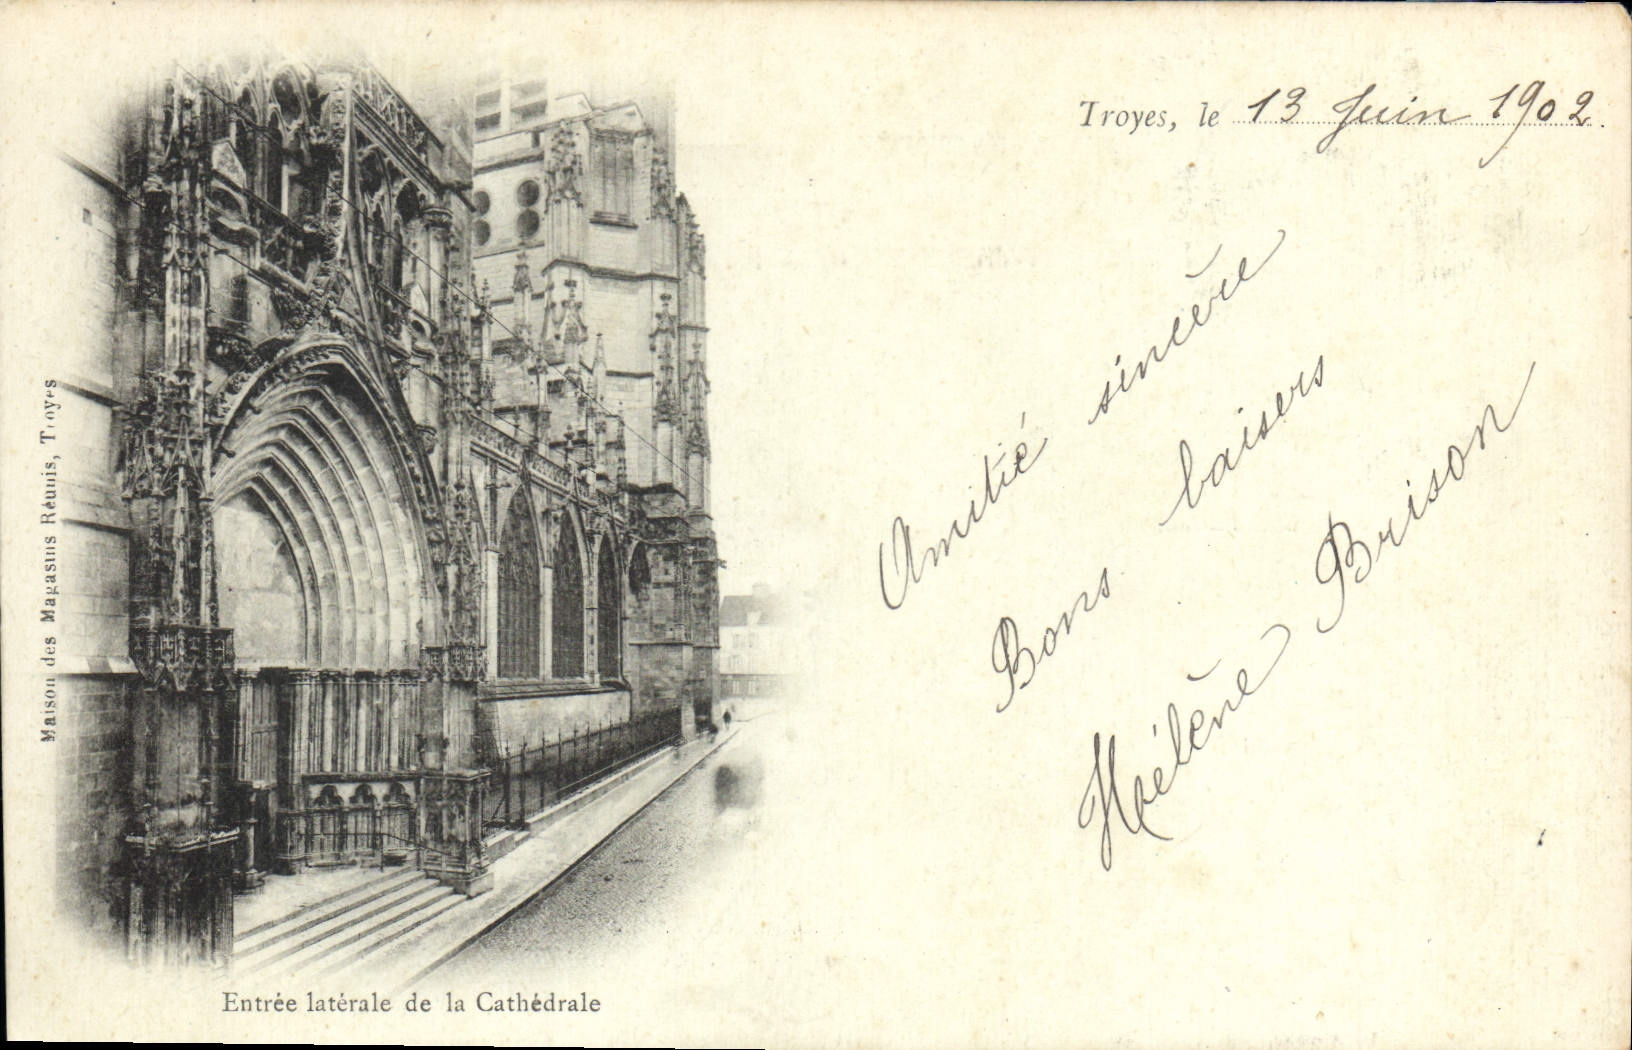 Troyes, le 13 Juin 1902.
Amitié sincère
Bons baisers
Hélène Brison
Maison des Magasins Réunis, Troyes
Entrée latérale de la Cathédrale